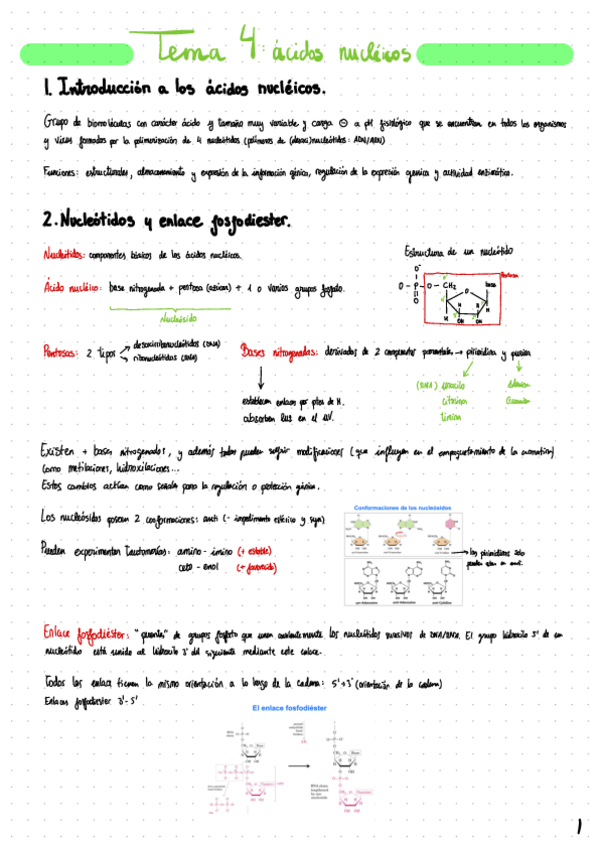 Tema 4: ácidos nucléicos
1. Introducción a los ácidos nucléicos.
Grupo de biomoléculas con carácter ácido y tamaño muy variable y carga ⊖ a pH fisiológico que se encuentran en todos los organismos
y virus formados por la polimerización de 4 nucleótidos (polímeros de (desoxi)nucleótidos: ADN/ARN)
Funciones: estructurales, almacenamiento y expansión de la información génica, regulación de la expresión genica y actividad enzimática.
2. Nucleótidos y enlace fosfodiester.
Nucleótidos: componentes básicos de los ácidos nucléicos.
Estructura de un nucleótido
Ácido nucléico: base nitrogenada + pentosa (azúcar) + 1 o varios grupos fosfato.
Nucleósido
O - P - O - CH₂
base
Pentosa
H
OH OH
Pentosas: 2 tipos
desoxirribonucleótidos (DNA)
ribonucleótidos (RNA)
Bases nitrogenadas: derivados de 2 compuestos parentales → pirimidina y purina
(RNA) Uracilo
Citosina
Timina
Adenina
Guanina
establecen enlaces por ptes de H.
absorben luz en el UV.
Existen + bases nitrogenadas, y además todas pueden seguir modificaciones (que influyen en el empaquetamiento de la cromatina)
como metilaciones, hidroxilaciones...
Estos cambios actúan como señales para la regulación o protección génica.
Los nucleósidos poseen 2 conformaciones: anti (- impedimento estérico y syn)
Conformaciones de los nucleósidos
Pueden experimentar tautomerías: amino - imino (+ estable)
ceto - enol (+ favorecida)
las pirimidinas solo
pueden estar en anti.
syn-Adenosine
anti-Adenosine
anti-Cytidine
Enlace fosfodiéster: "puente" de grupos fosfato que unen covalentemente los nucleótidos sucesivos de DNA/RNA. El grupo hidroxilo 5' de un
nucleótido está unido al hidroxilo 3' del siguiente mediante este enlace.
Todos los enlaces tienen la misma orientación a lo largo de la cadena: 5'→3' (orientación de la cadena)
Enlaces fosfodiester 3'-5'
El enlace fosfodiéster
1